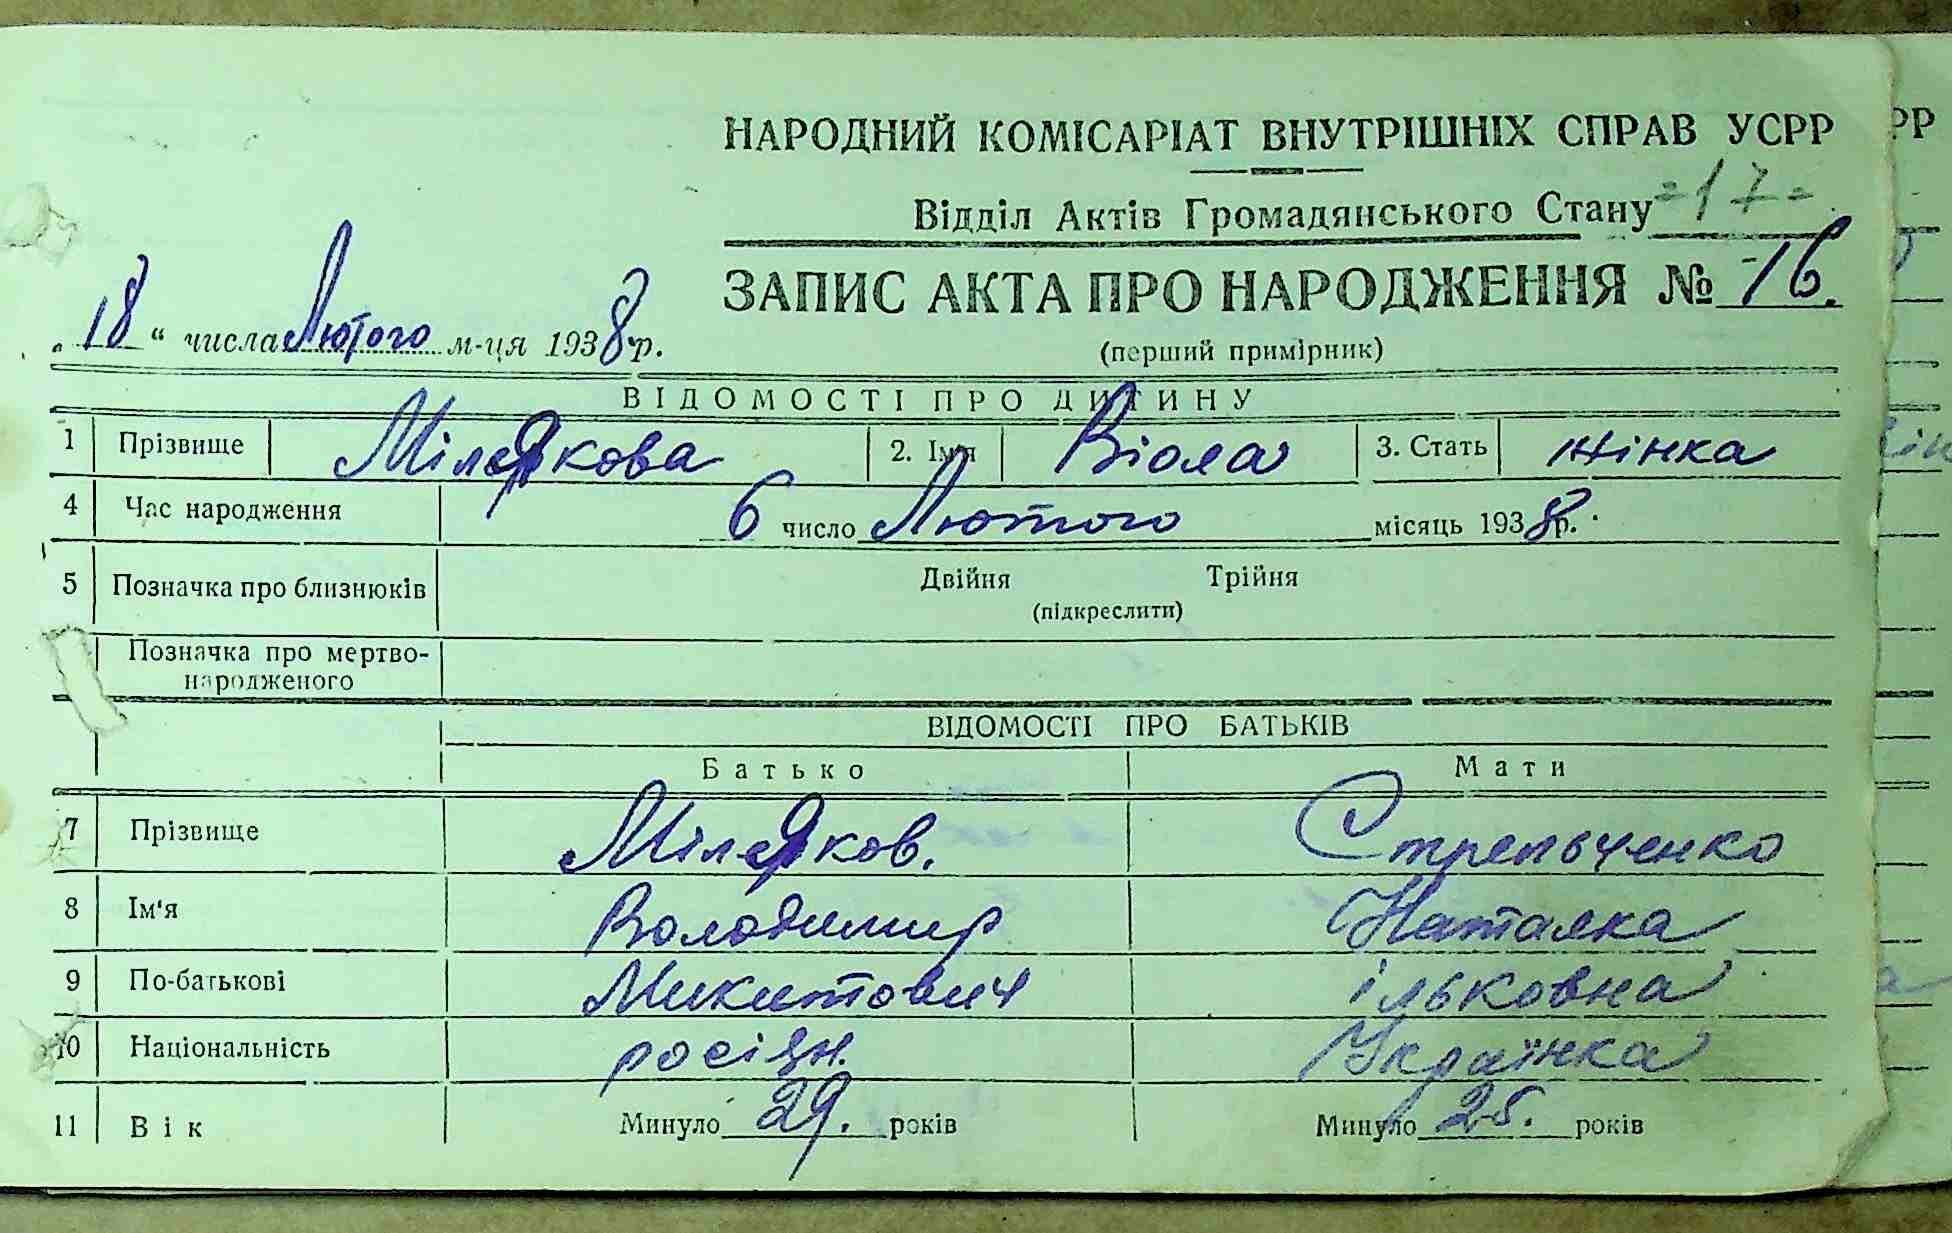 НАРОДНИЙ КОМІСАРІАТ ВНУТРІШНІХ СПРАВ УСРР
Відділ Актів Громадянського Стану -17-
ЗАПИС АКТА ПРО НАРОДЖЕННЯ № 16.
„18“ числа Лютого м-ця 1938 р.
(перший примірник)
ВІДОМОСТІ ПРО ДИТИНУ
1 Прізвище Мілякова 2. Ім'я Віола 3. Стать жінка
4 Час народження 6 число Лютого місяць 1938 р.
5 Позначка про близнюків Двійня Трійня
(підкреслити)
Позначка про мертво-
народженого
ВІДОМОСТІ ПРО БАТЬКІВ
Батько Мати
7 Прізвище Міляков. Стрельченко
8 Ім'я Володимир Наталка
9 По-батькові Микитович ільковна
10 Національність росіян. Українка
11 Вік Минуло 29. років Минуло 25. років